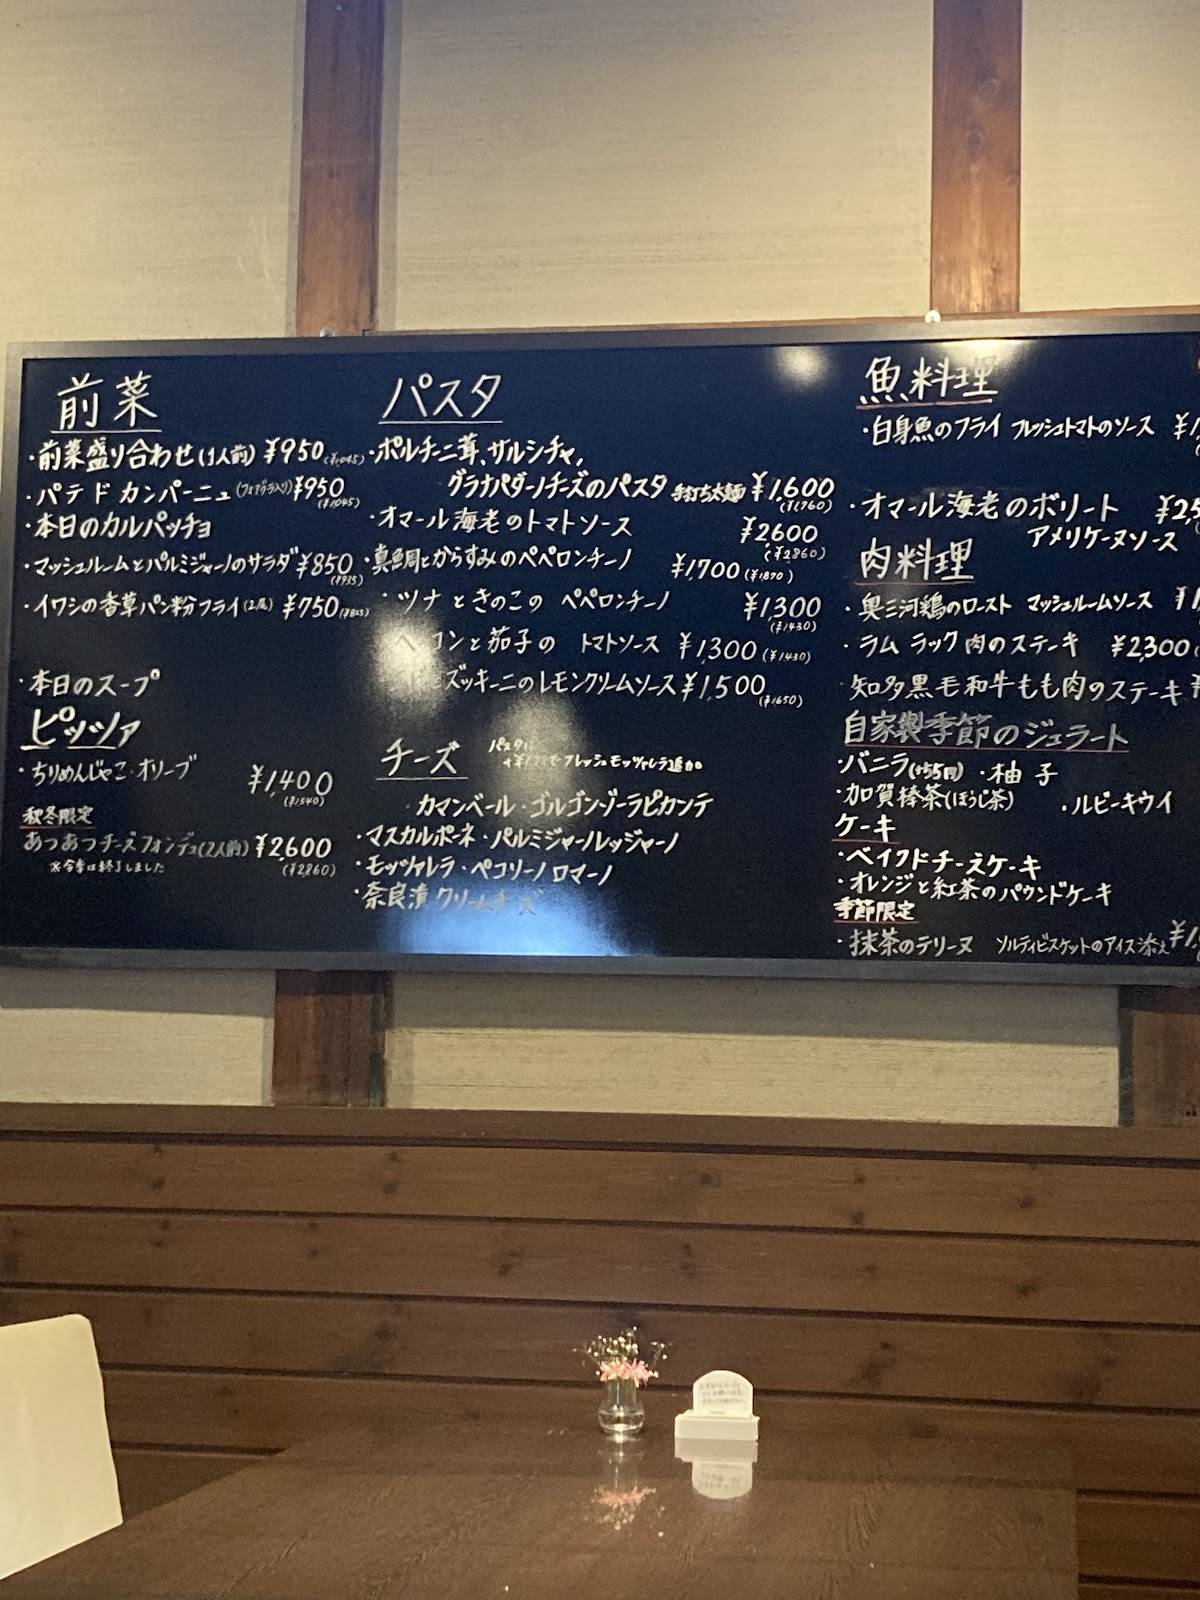 前菜
・前菜盛り合わせ(1人前) ¥950(¥1,045)
・パテ ド カンパーニュ(フォアグラ入り)¥950
(¥1045)
・本日のカルパッチョ
・マッシュルームとパルミジャーノのサラダ¥850
(¥935)
・イワシの香草パン粉フライ(2尾) ¥750(¥825)
・本日のスープ
ピッツァ
・ちりめんじゃこ・オリーブ ¥1,400
(¥1540)
秋冬限定
あつあつチーズフォンデュ(2人前) ¥2,600
(¥2,860)
※今季は終了しました
パスタ
・ポルチーニ茸、サルシチャ,
グラナパダーノチーズのパスタ 手打ち太麺 ¥1,600
(¥1,760)
・オマール海老のトマトソース ¥2600
(¥2860)
・真鯛とからすみのペペロンチーノ ¥1700(¥1870)
・ツナときのこの ペペロンチーノ ¥1300
(¥1430)
コンと茄子の トマトソース ¥1,300(¥1430)
ズッキーニのレモンクリームソース¥1,500
(¥1650)
チーズ
パスタに
フレッシュモッツァレラ追加
カマンベール・ゴルゴンゾーラピカンテ
・マスカルポーネ・パルミジャーノレッジャーノ
・モッツァレラ・ペコリーノロマーノ
・奈良漬クリームチーズ
魚料理
・白身魚のフライ フレッシュトマトのソース
・オマール海老のボリート
アメリケーヌソース
肉料理
・奥三河鶏のロースト マッシュルームソース
・ラム ラック肉のステーキ ¥2,300
・知多黒毛和牛もも肉のステーキ
自家製季節のジェラート
・バニラ(+55円) ・柚子
・加賀棒茶(ほうじ茶) ・ルビーキウイ
ケーキ
・ベイクドチーズケーキ
・オレンジと紅茶のパウンドケーキ
季節限定
・抹茶のテリーヌ ソルティビスケットのアイス添え